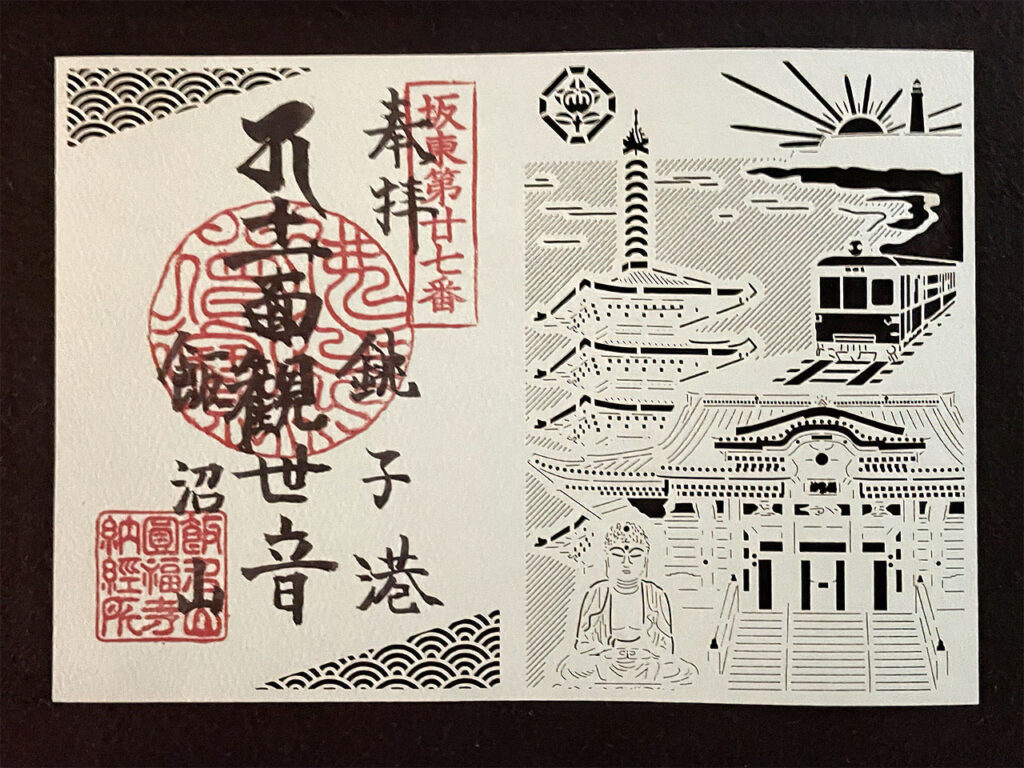 坂東第廿七番
奉拝
銚子港
十一面観世音
飯沼山
飯沼山
圓福寺
納經所